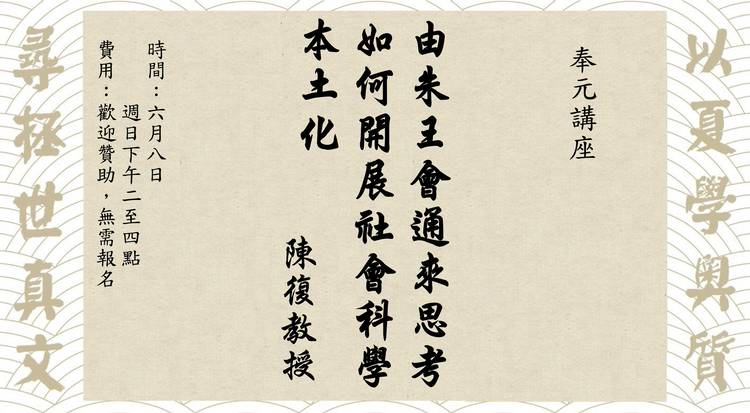 以夏學奧質
奉元講座
由朱王會通來思考
如何開展社會科學
本土化
陳復教授
時間：六月八日
週日下午二至四點
費用：歡迎贊助，無需報名
尋拯世真文